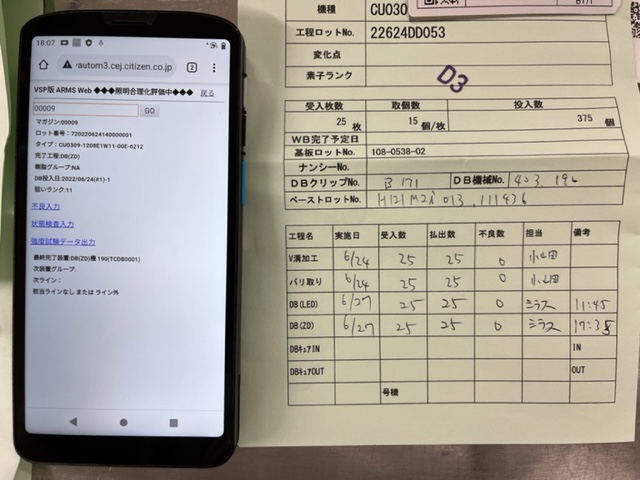 18:07
autom3.cej.citizen.co.jp
2
VSP版 ARMS Web ◆◆◆照明合理化評価中◆◆◆ 戻る
00009
GO
マガジン:00009
ロット番号:720220624140000001
タイプ:CU0309-1208E1W11-00E-6212
完了工程:DB(ZD)
樹脂グループ:NA
DB投入日:2022/06/24(#1)-1
狙いランク:11
不良入力
状態検査入力
強度試験データ出力
最終完了装置:DB(ZD)機 190(TCDB0001)
次装置グループ:
次ライン:
該当ラインなし または ライン外
機種 CU030
工程ロットNo. 22624DD053
変化点
素子ランク
D3
受入枚数 取個数 投入数
25 枚 15 個/枚 375 個
WB完了予定日
基板ロットNo. 108-0538-02
ナンシーNo.
DBクリップNo. B 171 DB機械No. 403, 190
ペーストロットNo. H121M2i 013, 111436
工程名 実施日 受入数 払出数 不良数 担当 備考
V溝加工 6/24 25 25 0 小山田
バリ取り 6/24 25 25 0 小山田
DB(LED) 6/27 25 25 0 シラス 11:45
DB(ZD) 6/27 25 25 0 シラス
DBキュアIN IN
DBキュアOUT OUT
号機